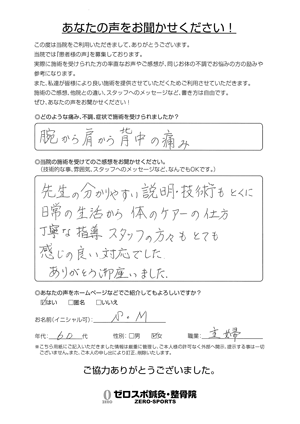 あなたの声をお聞かせください！
この度は当院をご利用いただきまして、ありがとうございます。
当院では『患者様の声』を募集しております。
実際に施術を受けられた方の率直なお声やご感想が、同じお体の不調でお悩みの方の励みや
参考になります。
また、私達が皆様により良い施術を提供させていただくためご利用させていただきます。
施術のご感想、他院との違い、スタッフへのメッセージなど、書き方は自由です。
ぜひ、あなたの声をお聞かせください！
◎どのような痛み、不調、症状で施術を受けられましたか？
腕から肩から背中の痛み
◎当院の施術を受けてのご感想をお聞かせください。
（技術的な事、雰囲気、スタッフへのメッセージなど、なんでもOKです。）
先生の分かりやすい説明・技術もとくに
日常の生活から体のケアーの仕方
丁寧な指導 スタッフの方々もとても
感じの良い対応でした
ありがとう御座いました
◎あなたの声をホームページなどでご紹介してもよろしいですか？
☑はい □匿名 □いいえ
お名前(イニシャル可)： N・M
年代： 60 代 性別：□男 ☑女 職業： 主婦
※こちら用紙にご記入いただきました情報は厳重に管理し、ご本人様の許可なく外部へ開示、提示する事は一切
ございません。また、ご本人の申し出により訂正、削除いたします。
ご協力ありがとうございました。
ゼロスポ鍼灸・整骨院
ZERO-SPORTS